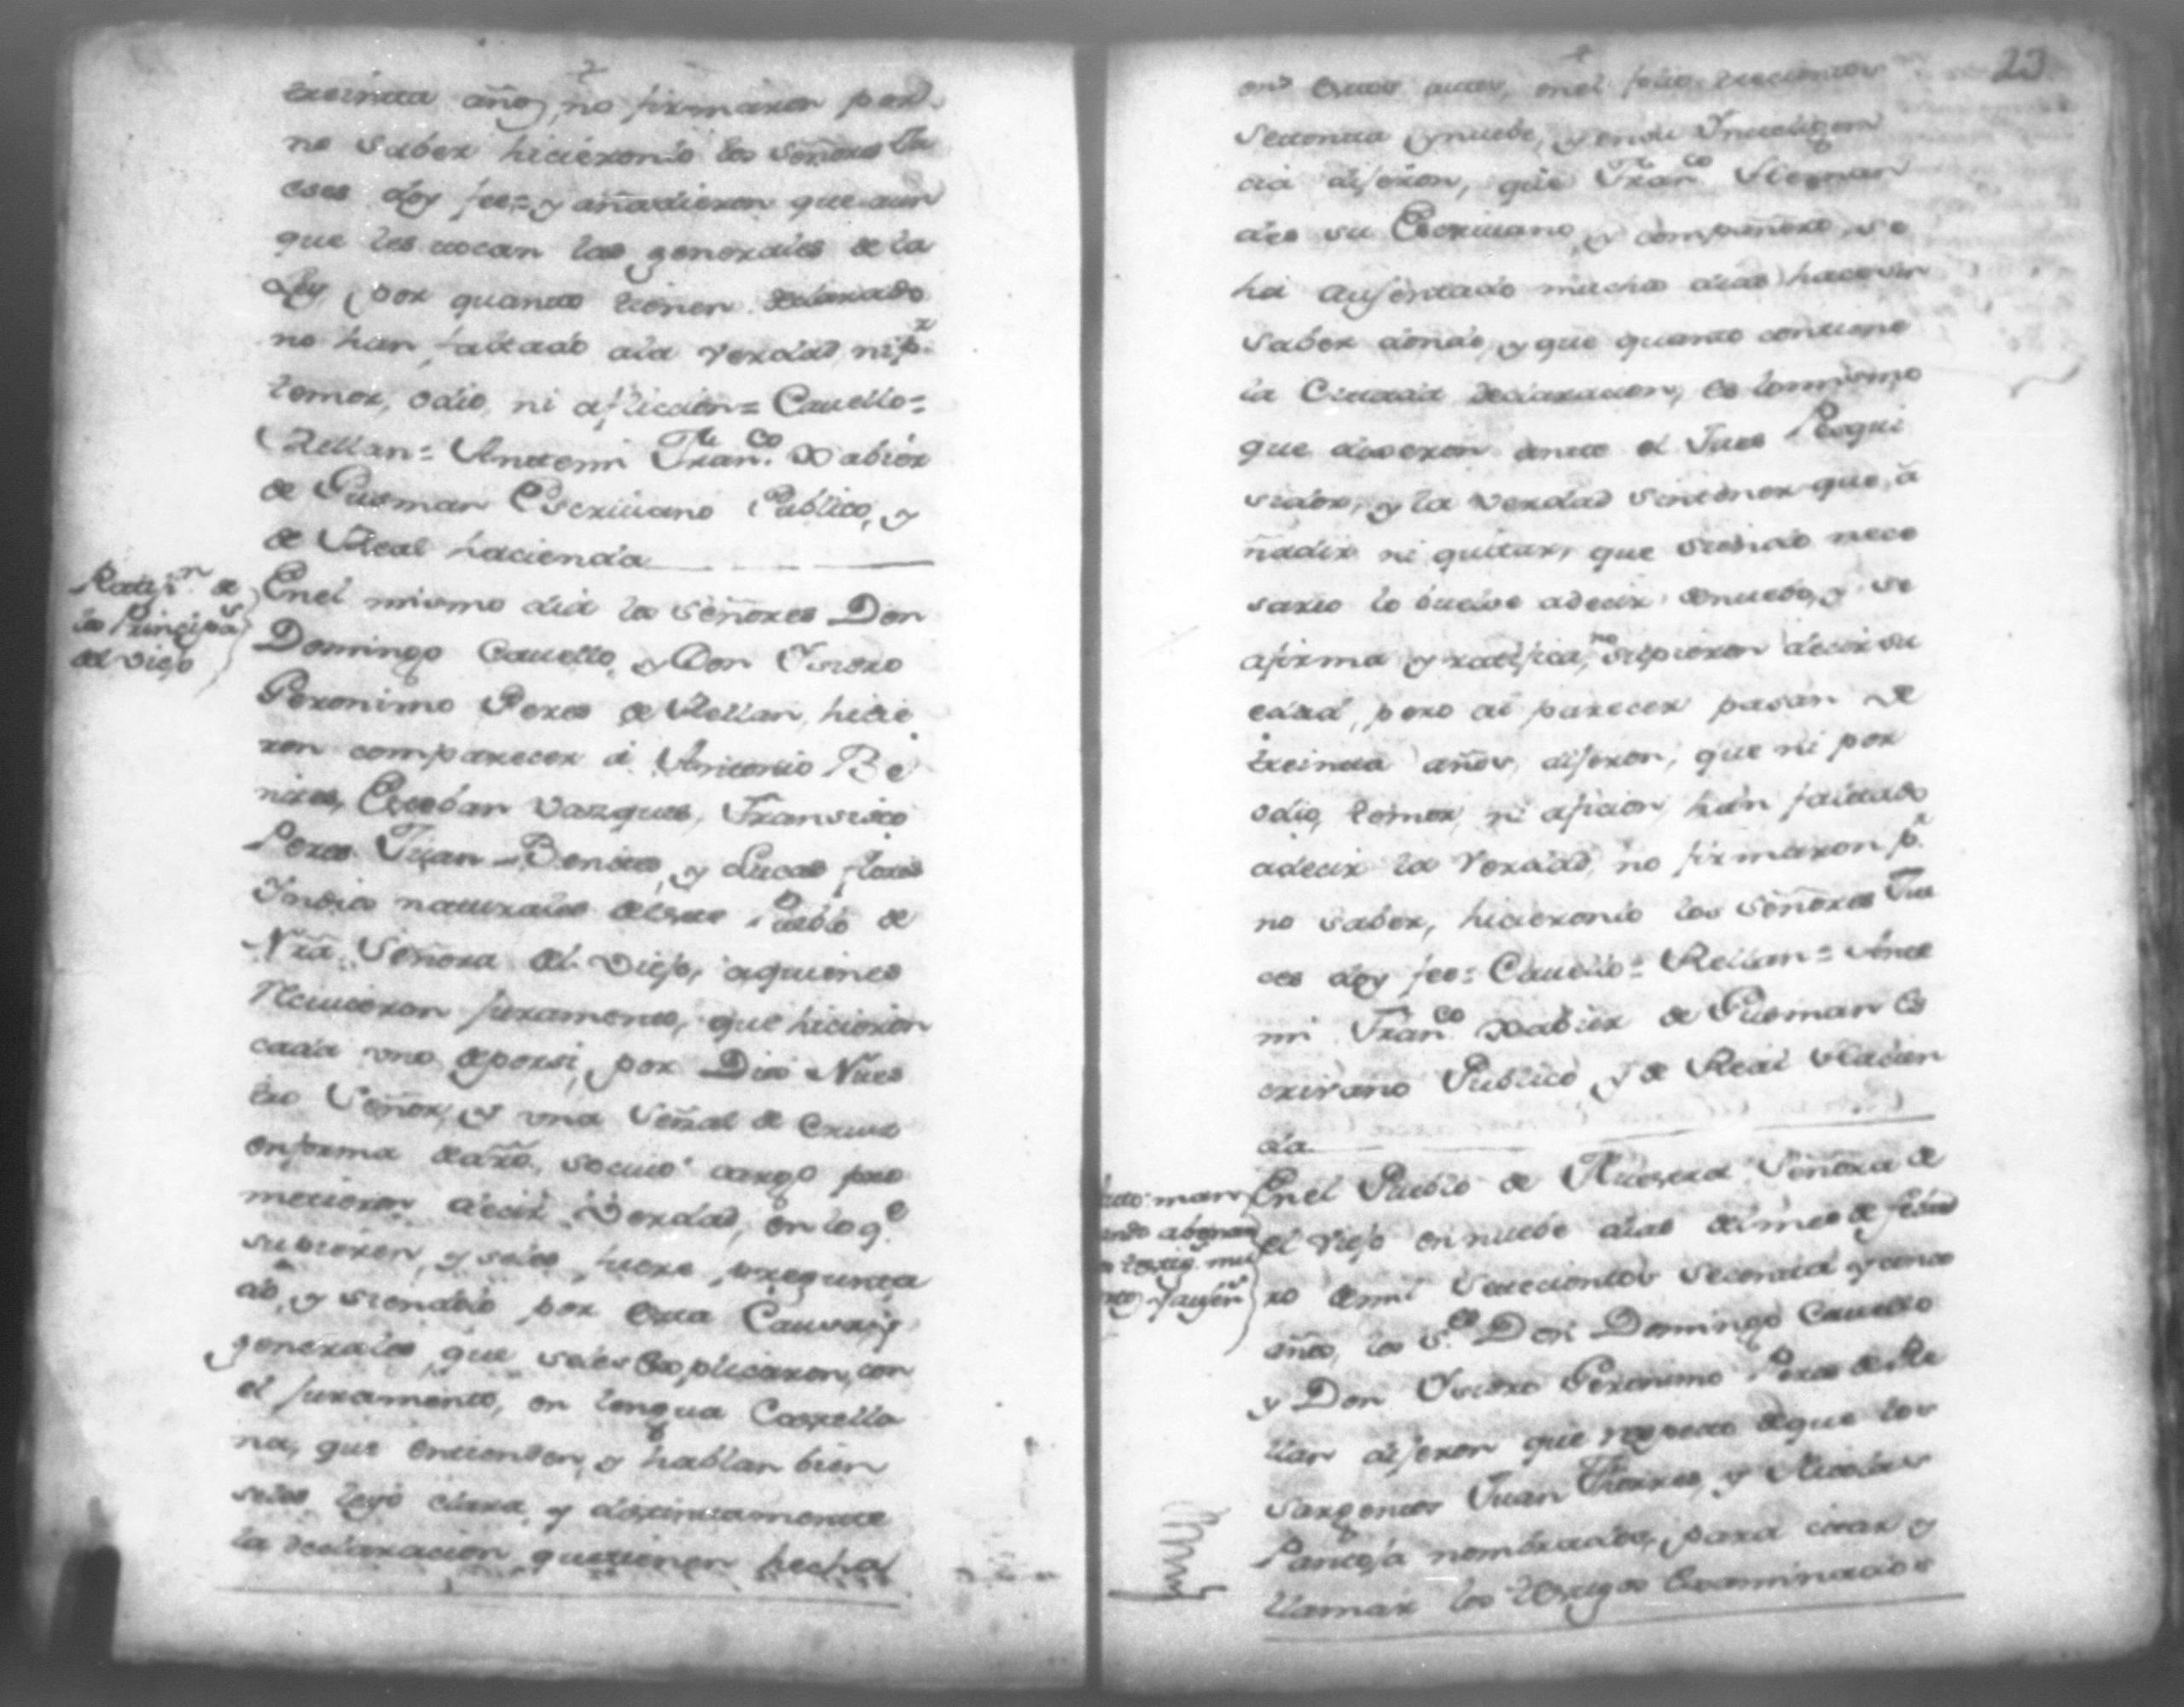 treinta años, no firmaron por
no saber hicieronlo los Señores Ju
eses doy fee= y añadieron que aun
que les tocan las generales de la
Ley, por quanto tienen declarado
no han faltado ala verdad, ni p.r
temor, odio, ni afliccion= Cauello=
Rellan= Antemi Fran.co Xabier
de Gusman Escriuano Publico, y
de Real hacienda
Ratif.n de
los Principa.s
del viejo
Enel mismo dia los Señores Don
Domingo Cauello, y Don Isidro
Geronimo Peres de Rellan, hicie
ron comparecer á Antonio Be
nites, Esteban Vazques, Fransisco
Peres Juan Benites, y Lucas flores
Indios naturales deeste Pueblo de
Nra. Señora del Viejo, aquienes
Reciuieron juramento, que hicieron
cada uno deporsi, por Dios Nues
tro Señor, y una Señal de Cruus
enforma dedro, socuio cargo pro
metieron decir Verdad, en lo q.e
supieren, y seles fuere pregunta
do, y siendolo por esta Causa, y
generales, que seles explicaron, con
el juramento, en lengua Castella
na, que entienden, y hablan bien
seles leyó clara, y distintamente
la declaracion, quetienen hecha
23
en estos autos, enel folio trecientos
setenta y nuebe, y ensu Inteligen
cia dijeron, que Fran.co Hernan
des su Escriuano, y compañero, se
ha ausentado muchos dias hace sin
saber donde, y que quanto contiene
la Citada declaracion, es lomismo
que dixeron ante el Jues Pesqui
sidor, y la verdad sintener que, a
ñadir ni quitar, que siendo nece
sario lo buelve adecir denuebo, y se
afirma y ratifica, no supieron decir su
edad, pero al parecer pasan de
treinta años, dijeron, que ni por
odio, temor, ni aficion, han faltado
adecir la verdad, no firmaron p.r
no saber, hicieronlo los Señores Jue
ces doy fee= Cauello= Rellan= Ante
mi Fran.co Xabier de Gusman Es
crivano Publico, y de Real Hacien
da
Enel Pueblo de Nuestra Señora de
el Viejo en nuebe dias delmes de febre
ro demil Setecientos setenta y cinco
años, los S.res Don Domingo Cauello
y Don Isidro Geronimo Peres de Re
llan dijeron que respecto deque los
sargentos Juan Flores, y Nicolas
Pantoja nombrados, para citar y
llamar los testigos examinados